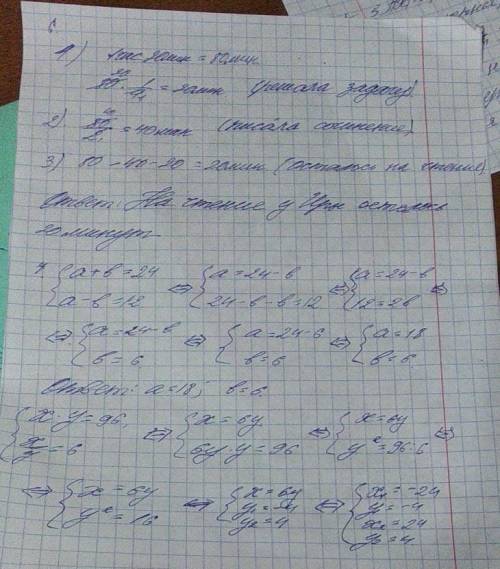 6
1) 1 час 20 мин = 80 мин
80 · 1/4 = 20 мин (решала задачу)
2) 80/2 = 40 мин (писала сочинение)
3) 80 - 40 - 20 = 20 мин (осталось на чтение)
Ответ: На чтение у Иры осталось
20 минут
7 { a + b = 24 ; a - b = 12 ⇔ { a = 24 - b ; 24 - b - b = 12 ⇔ { a = 24 - b ; 12 = 2b ⇔
⇔ { a = 24 - b ; b = 6 ⇔ { a = 24 - 6 ; b = 6 ⇔ { a = 18 ; b = 6
Ответ: a = 18; b = 6.
{ x · y = 96, ; x/y = 6 ⇔ { x = 6y ; 6y · y = 96 ⇔ { x = 6y ; y² = 96 : 6 ⇔
⇔ { x = 6y ; y² = 16 ⇔ { x = 6y ; y₁ = -4 ; y₂ = 4 ⇔ { x₁ = -24 ; y₁ = -4 ; x₂ = 24 ; y₂ = 4